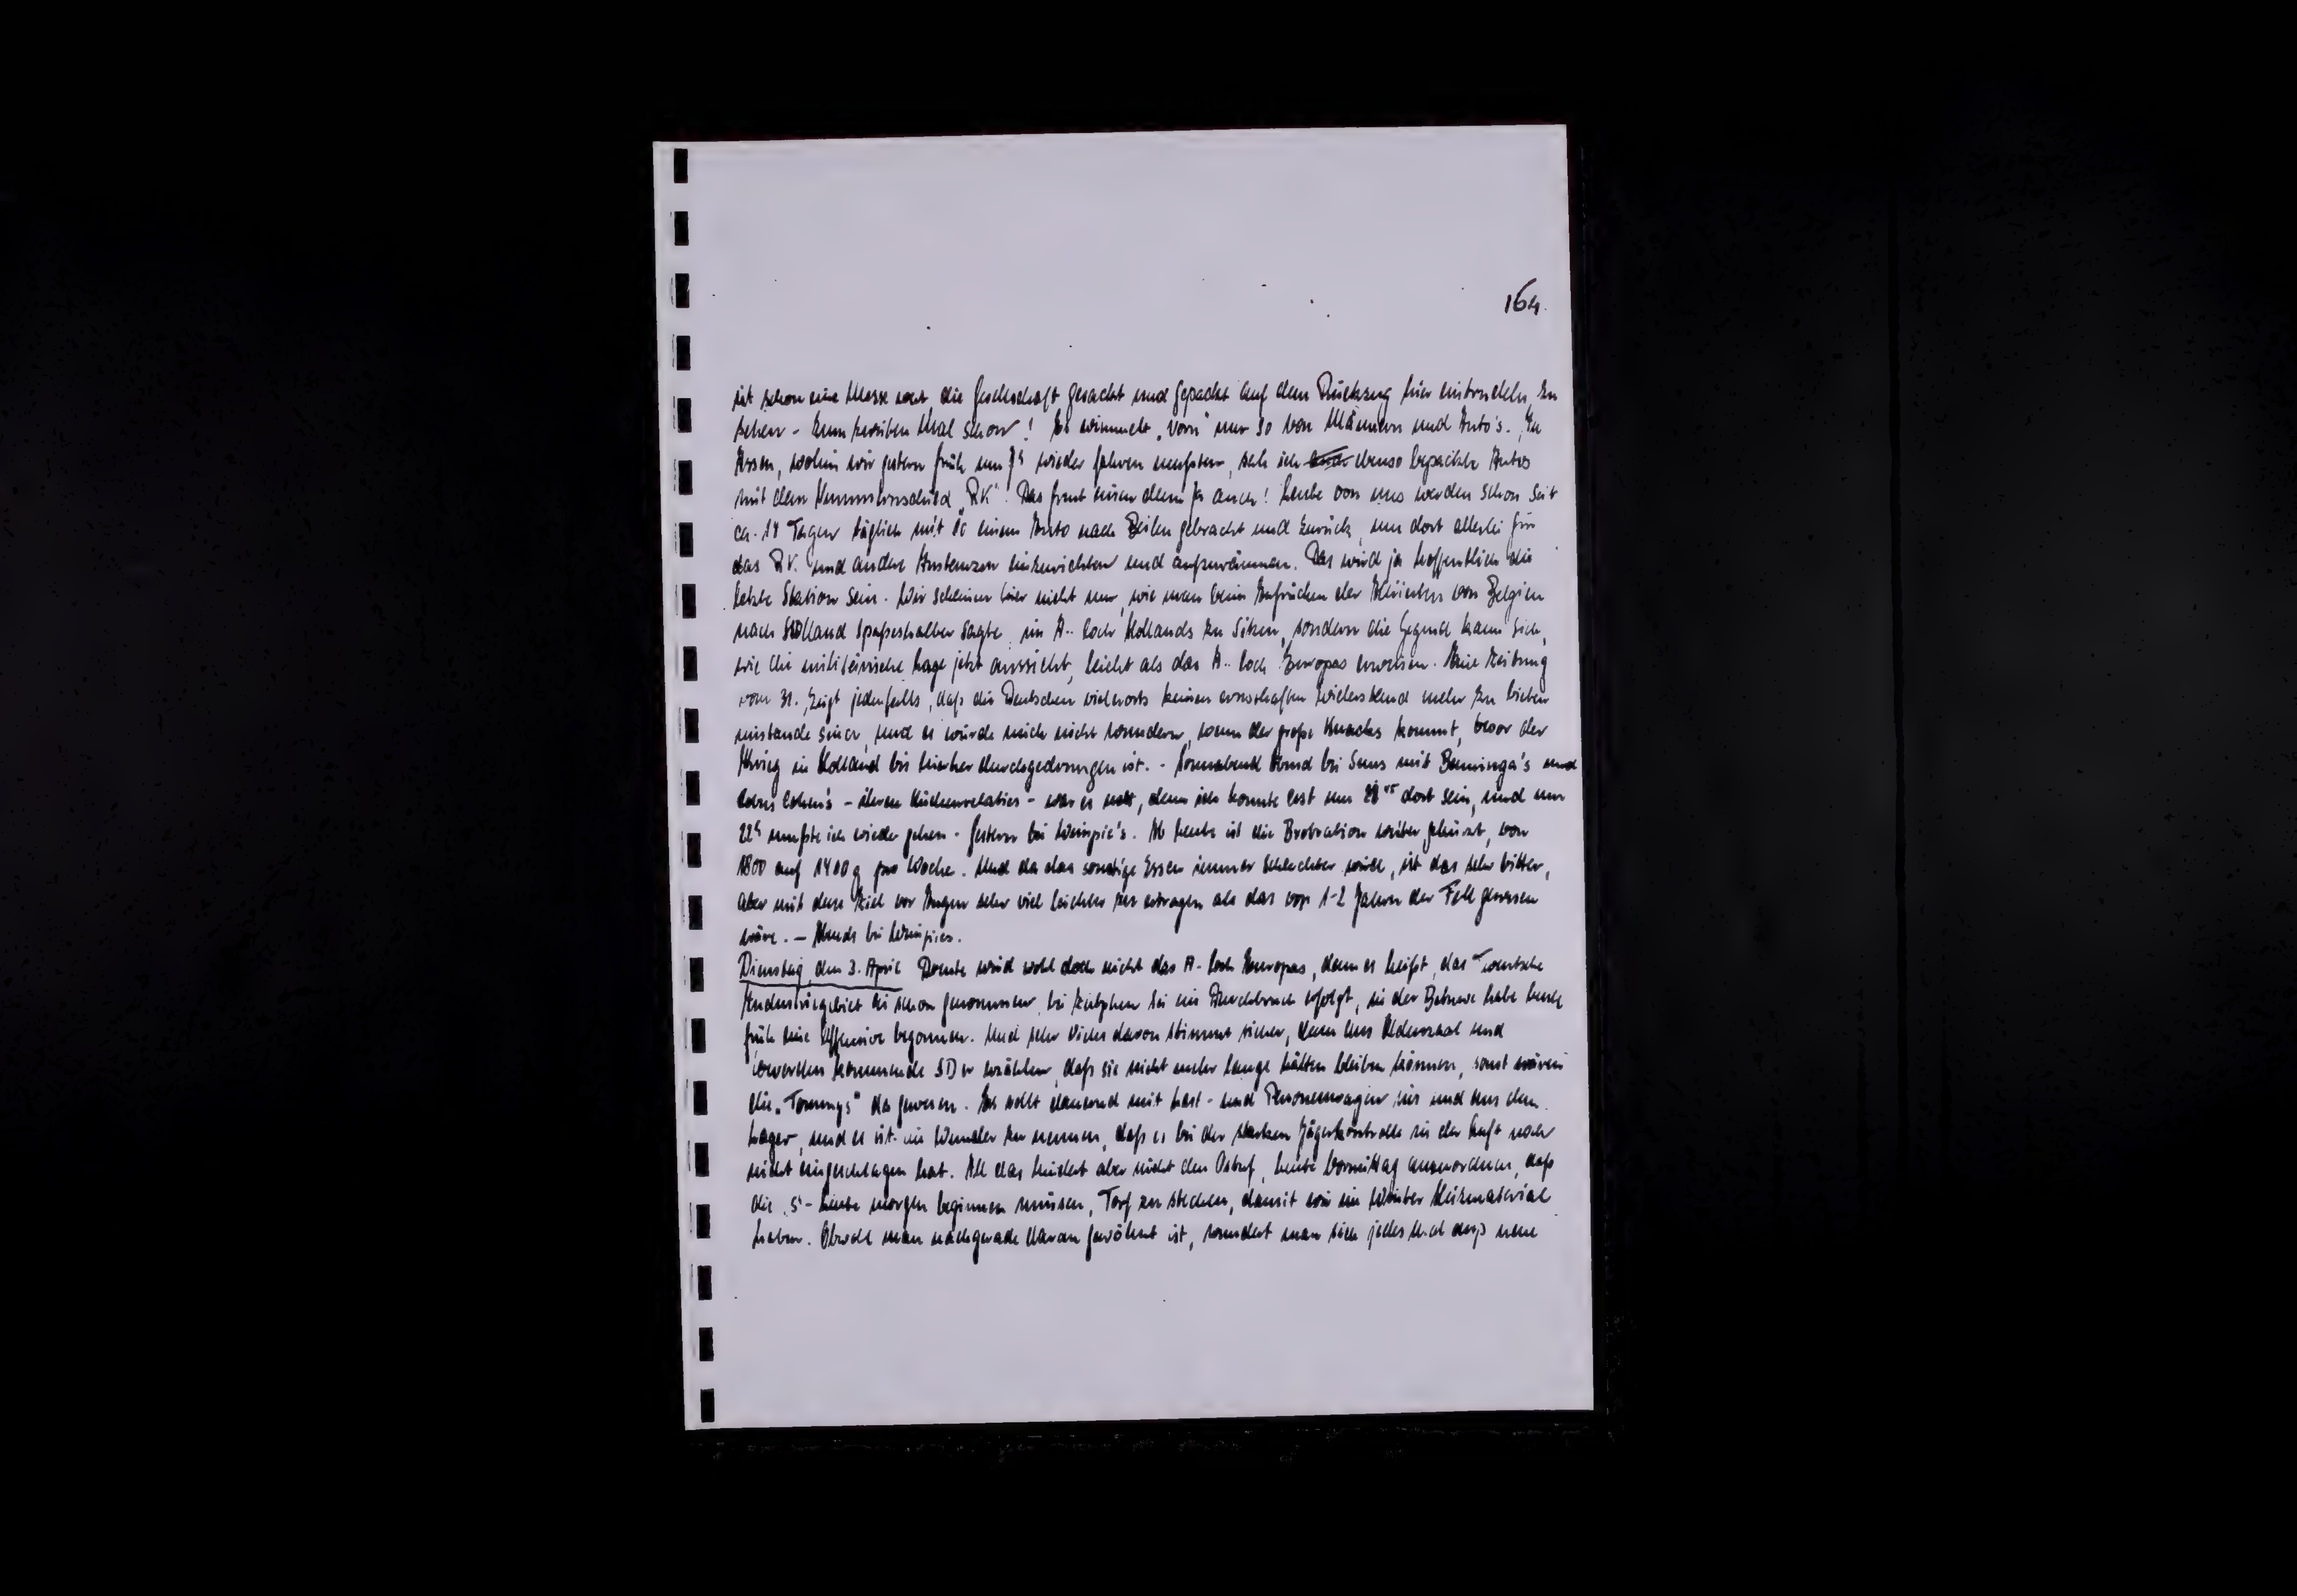 164.
ist schon eine Masse wert, die Gesellschaft gesackt und gepackt auf dem Rückzug hier eintrudeln zu
sehen - zum zweiten Mal schon! Es wimmelt „vorn" nur so von Männern und Auto's. In
Assen, wohin wir gestern früh um 7h wieder fahren mussten, sah ich ebenso bepackte Autos
mit dem Nummernschild „RK". Das freut einen denn ja auch! Leute von uns werden schon seit
ca. 14 Tagen täglich mit so einem Auto nach Zeilen gebracht und zurück, um dort allerlei für
das RK. und andere Instanzen einzurichten und aufzuräumen. Das wird ja hoffentlich die
letzte Station sein. Wir scheinen hier nicht nur, wie man beim Anrücken der Alliierten von Belgien
nach Holland spaßeshalber sagte, im A.. loch Hollands zu sitzen, sondern die Gegend kann sich,
wie die militärische Lage jetzt aussieht, leicht als das A.. loch Europas erweisen. Eine Zeitung
vom 31. zeigt jedenfalls, daß die Deutschen vielerorts keinen ernsthaften Widerstand mehr zu bieten
imstande sind, und es würde mich nicht wundern, wenn der große Knacks kommt, bevor der
Krieg in Holland bis hierher durchgedrungen ist. - Sonnabend Abend bei Suus mit Benninga's und
Cohen's - ihren Küchenrelaties - war es nett, denn ich konnte erst um dort sein, und um
22h mußte ich wieder gehen - Gestern bei Wimpie's. Ab heute ist die Brotration weiter gekürzt, von
1800 auf 1400 g pro Woche. Und da das sonstige Essen immer schlechter wird, ist das sehr bitter,
aber mit dem Ziel vor Augen sehr viel leichter zu ertragen als das vor 1-2 Jahren der Fall gewesen
wäre. - Abends bei Wimpies.
Dienstag, den 3. April Drente wird wohl doch nicht das A-loch Europas, denn es heißt, das Twentsche
Industriegebiet sei schon genommen, bei Zutphen sei ein Durchbruch erfolgt, in der Betuwe habe heute
früh eine Offensive begonnen. Und sehr vieles davon stimmt sicher, denn aus Oldenzaal und
Coevorden kommende SDer erzählen, daß sie nicht mehr lange hätten bleiben können, sonst wären
die „Tommys" da gewesen. Es rollt dauernd mit Last- und Personenwagen ein und aus dem
Lager, und es ist ein Wunder zu nennen, daß es bei der starken Jägerkontrolle in der Luft noch
nicht eingeschlagen hat. All das hindert aber nicht den Ostuf, heute Vormittag anzuordnen, daß
die S-Leute morgen beginnen müssen, Torf zu stechen, damit wir im Winter Heizmaterial
haben. Obwohl man nachgerade daran gewöhnt ist, wundert man sich jedes Mal aufs neue